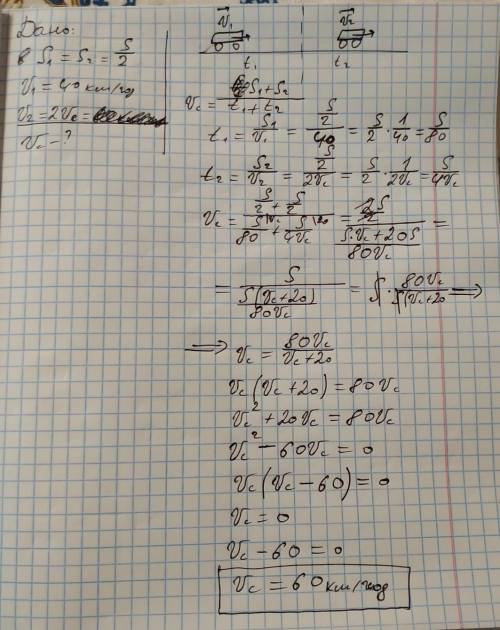 Дано:
в S₁ = S₂ = S/2
V₁ = 40 км/год
V₂ = 2Vc =
Vc - ?
V₁ V₂
t₁ t₂
Vc = (S₁+S₂)/(t₁+t₂)
t₁ = S₁/V₁ = (S/2)/40 = S/2 · 1/40 = S/80
t₂ = S₂/V₂ = (S/2)/(2Vc) = S/2 · 1/(2Vc) = S/(4Vc)
Vc = (S/2 + S/2)/(S/80 + S/(4Vc)) = (2S/2)/((S·Vc+20S)/(80Vc)) =
= S/(S(Vc+20)/(80Vc)) = S · 80Vc/(S(Vc+20) ⟹
⟹ Vc = 80Vc/(Vc+20)
Vc(Vc+20) = 80Vc
Vc² + 20Vc = 80Vc
Vc² - 60Vc = 0
Vc(Vc-60) = 0
Vc = 0
Vc - 60 = 0
Vc = 60 км/год